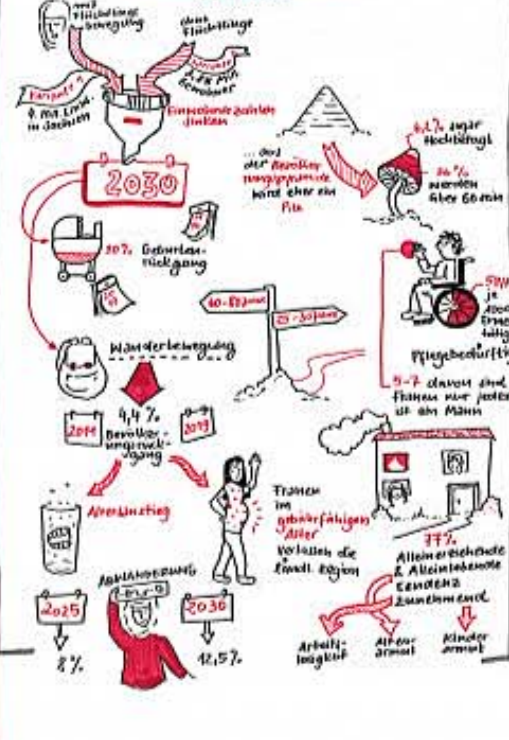 mit
Flüchtlings
bewegung
ohne
Flüchtlinge
Variante 1
4 Mio. Einw.
in Sachsen
3,8 Mio.
Einwohner
Einwohnerzahlen
sinken
2030
... aus
der Bevölker
ungspyramide
wird eher ein
Pilz
sogar
Hochbetagt
36%
werden
über 60 sein
Geburten-
rückgang
je
Pflegebedürftig
5-7 davon sind
Frauen nur jeder
ist ein Mann
25-30 Jahre
Wanderbewegung
4,4%
2014
2019
Bevölker
ungsrück-
gang
Altersanstieg
Frauen
im
gebärfähigen
Alter
verlassen die
ländl. Region
77%
Alleinerziehende
& Alleinlebende
Tendenz
zunehmend
ABWANDERUNG
2025
2030
8%
12,5%
Arbeits-
losigkeit
Alters-
armut
Kinder
armut